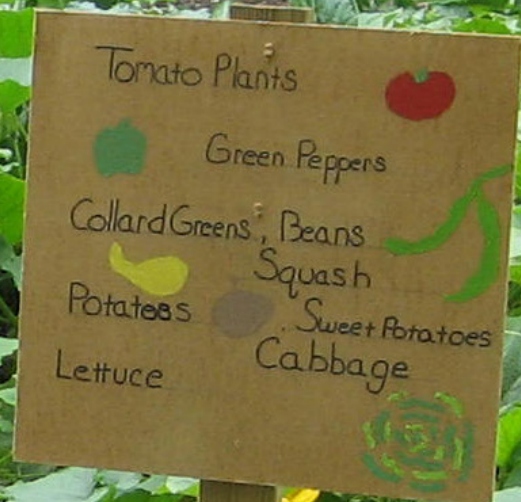 Tomato Plants
Green Peppers
Collard Greens, Beans
Squash
Potatoes
Sweet Potatoes
Cabbage
Lettuce